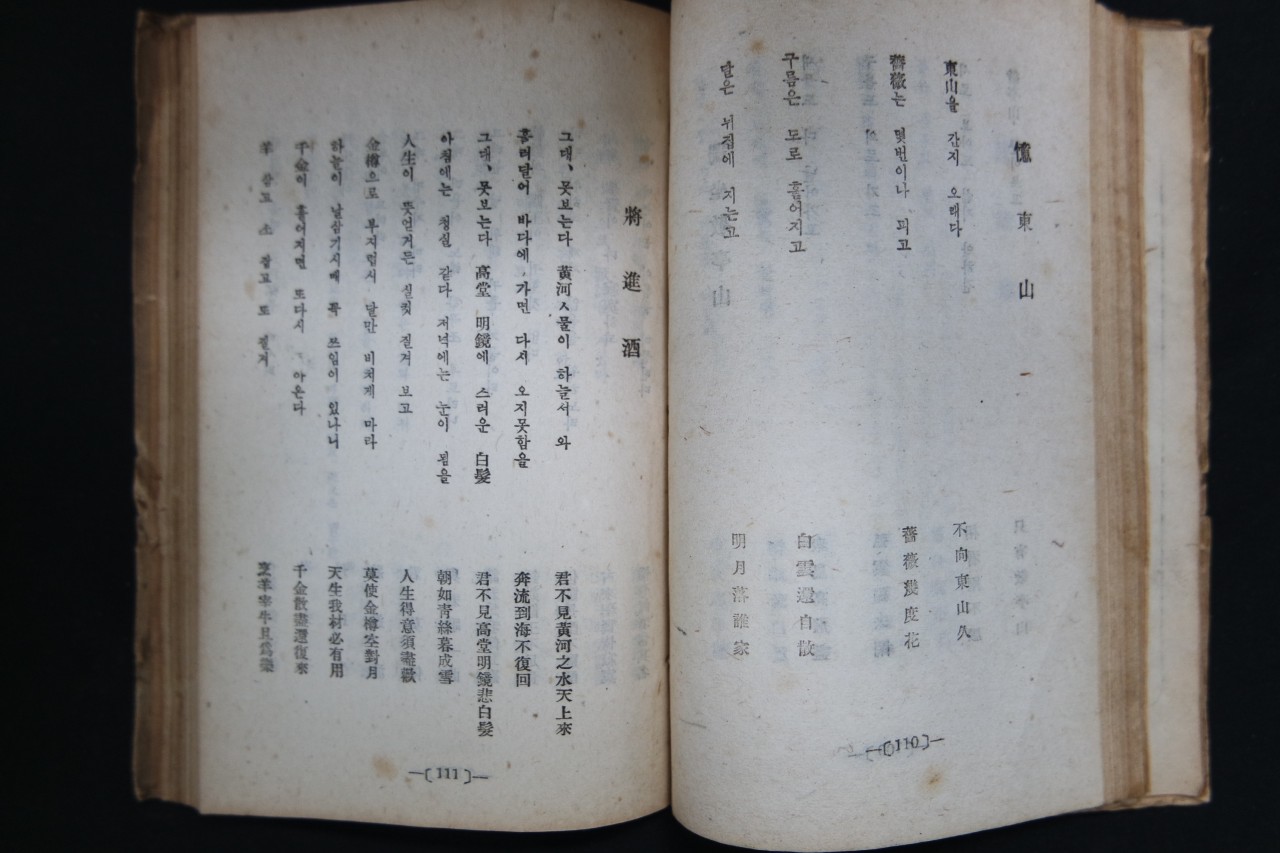 憶東山
東山을 간지 오래다
薔薇는 몇번이나 피고
구름은 도로 흩어지고
달은 뉘집에 지는고
不向東山久
薔薇幾度花
白雲還自散
明月落誰家
—〔110〕—
將進酒
그대、못보는다 黃河ㅅ물이 하늘서 와
흘러달어 바다에 가면 다시 오지못함을
그대、못보는다 高堂 明鏡에 스러운 白髮
아침에는 청실 같다 저녁에는 눈이 됨을
人生이 뜻얻거든 실컷 질겨 보고
金樽으로 부지럽서 달만 비치게 마라
하늘이 날삼기시매 쓰임이 있나니
千金이 흩어지면 또다시 아온다
羊 삼고 소 잡고 또 질겨
君不見黃河之水天上來
奔流到海不復回
君不見高堂明鏡悲白髮
朝如靑絲暮成雪
人生得意須盡歡
莫使金樽空對月
天生我材必有用
千金散盡還復來
烹羊宰牛且爲樂
—〔111〕—